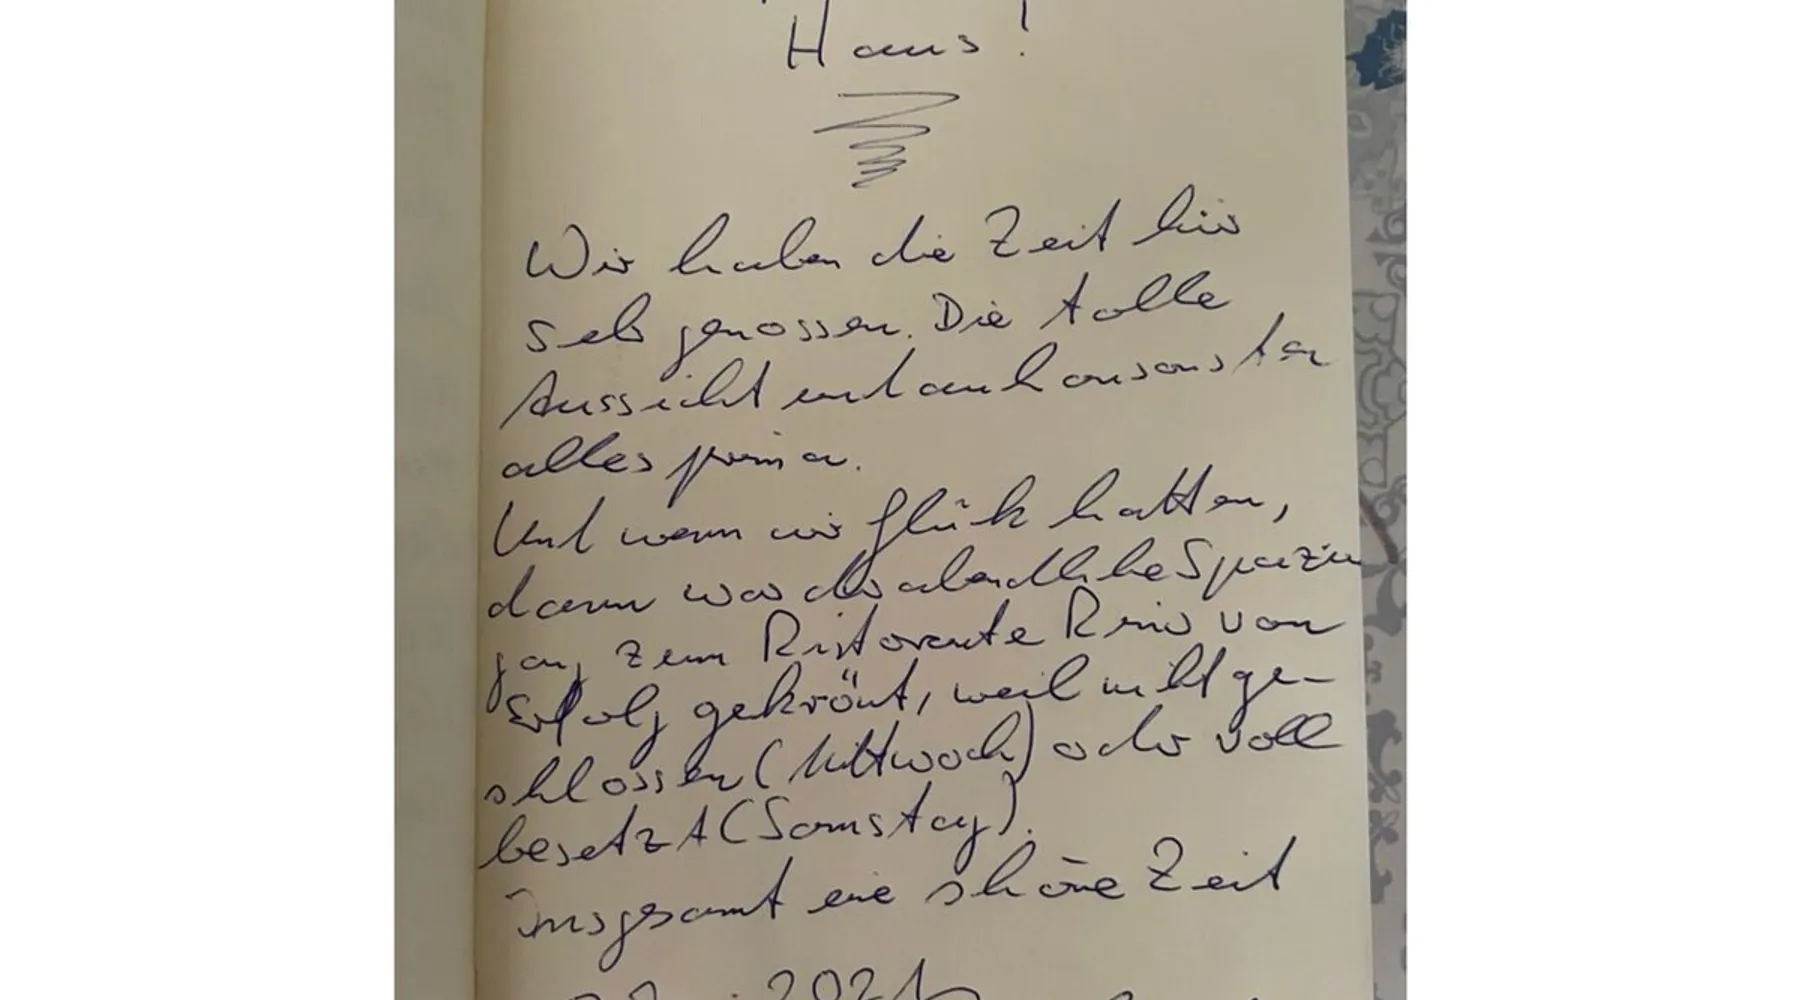 Haus!
Wir haben die Zeit hier
sehr genossen. Die tolle
Aussicht und auch ansonsten
alles prima.
Und wenn wir Glück hatten,
dann war der abendliche Spazier
gang zum Ristorante von
Erfolg gekrönt, weil nicht ge-
schlossen (Mittwoch) oder voll
besetzt (Samstag).
Insgesamt eine schöne Zeit